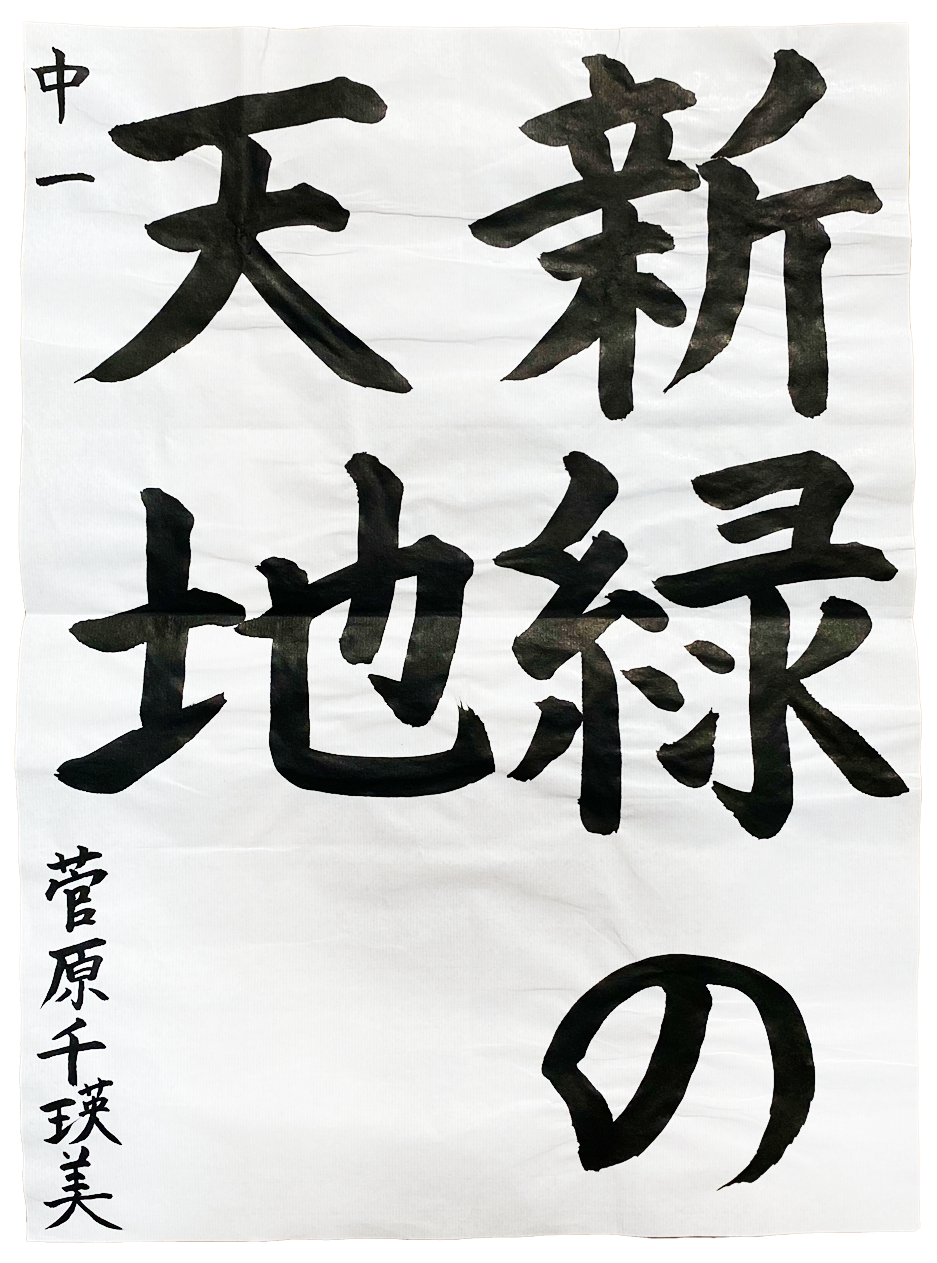 新緑の
天地
中一
菅原千瑛美